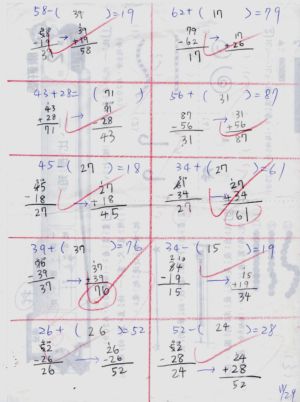 58-( 39 )=19
58 → 39
-19 +19
31 58
62+( 17 )=79
79 → 17
-62 +26
17
43+28=( 71 )
43 → 71
+28 -28
71 43
56+( 31 )=87
87 → 31
-56 +56
31 87
45-( 27 )=18
45 → 27
-18 +18
27 45
34+( 27 )=61
61 → 27
-34 +34
27 61
39+( 37 )=76
76 → 37
-39 +39
37 76
34-( 15 )=19
34 → 15
-19 +19
15 34
26+( 26 )=52
52 → 26
-26 -26
26 52
52-( 24 )=28
52 → 24
-28 +28
24 52